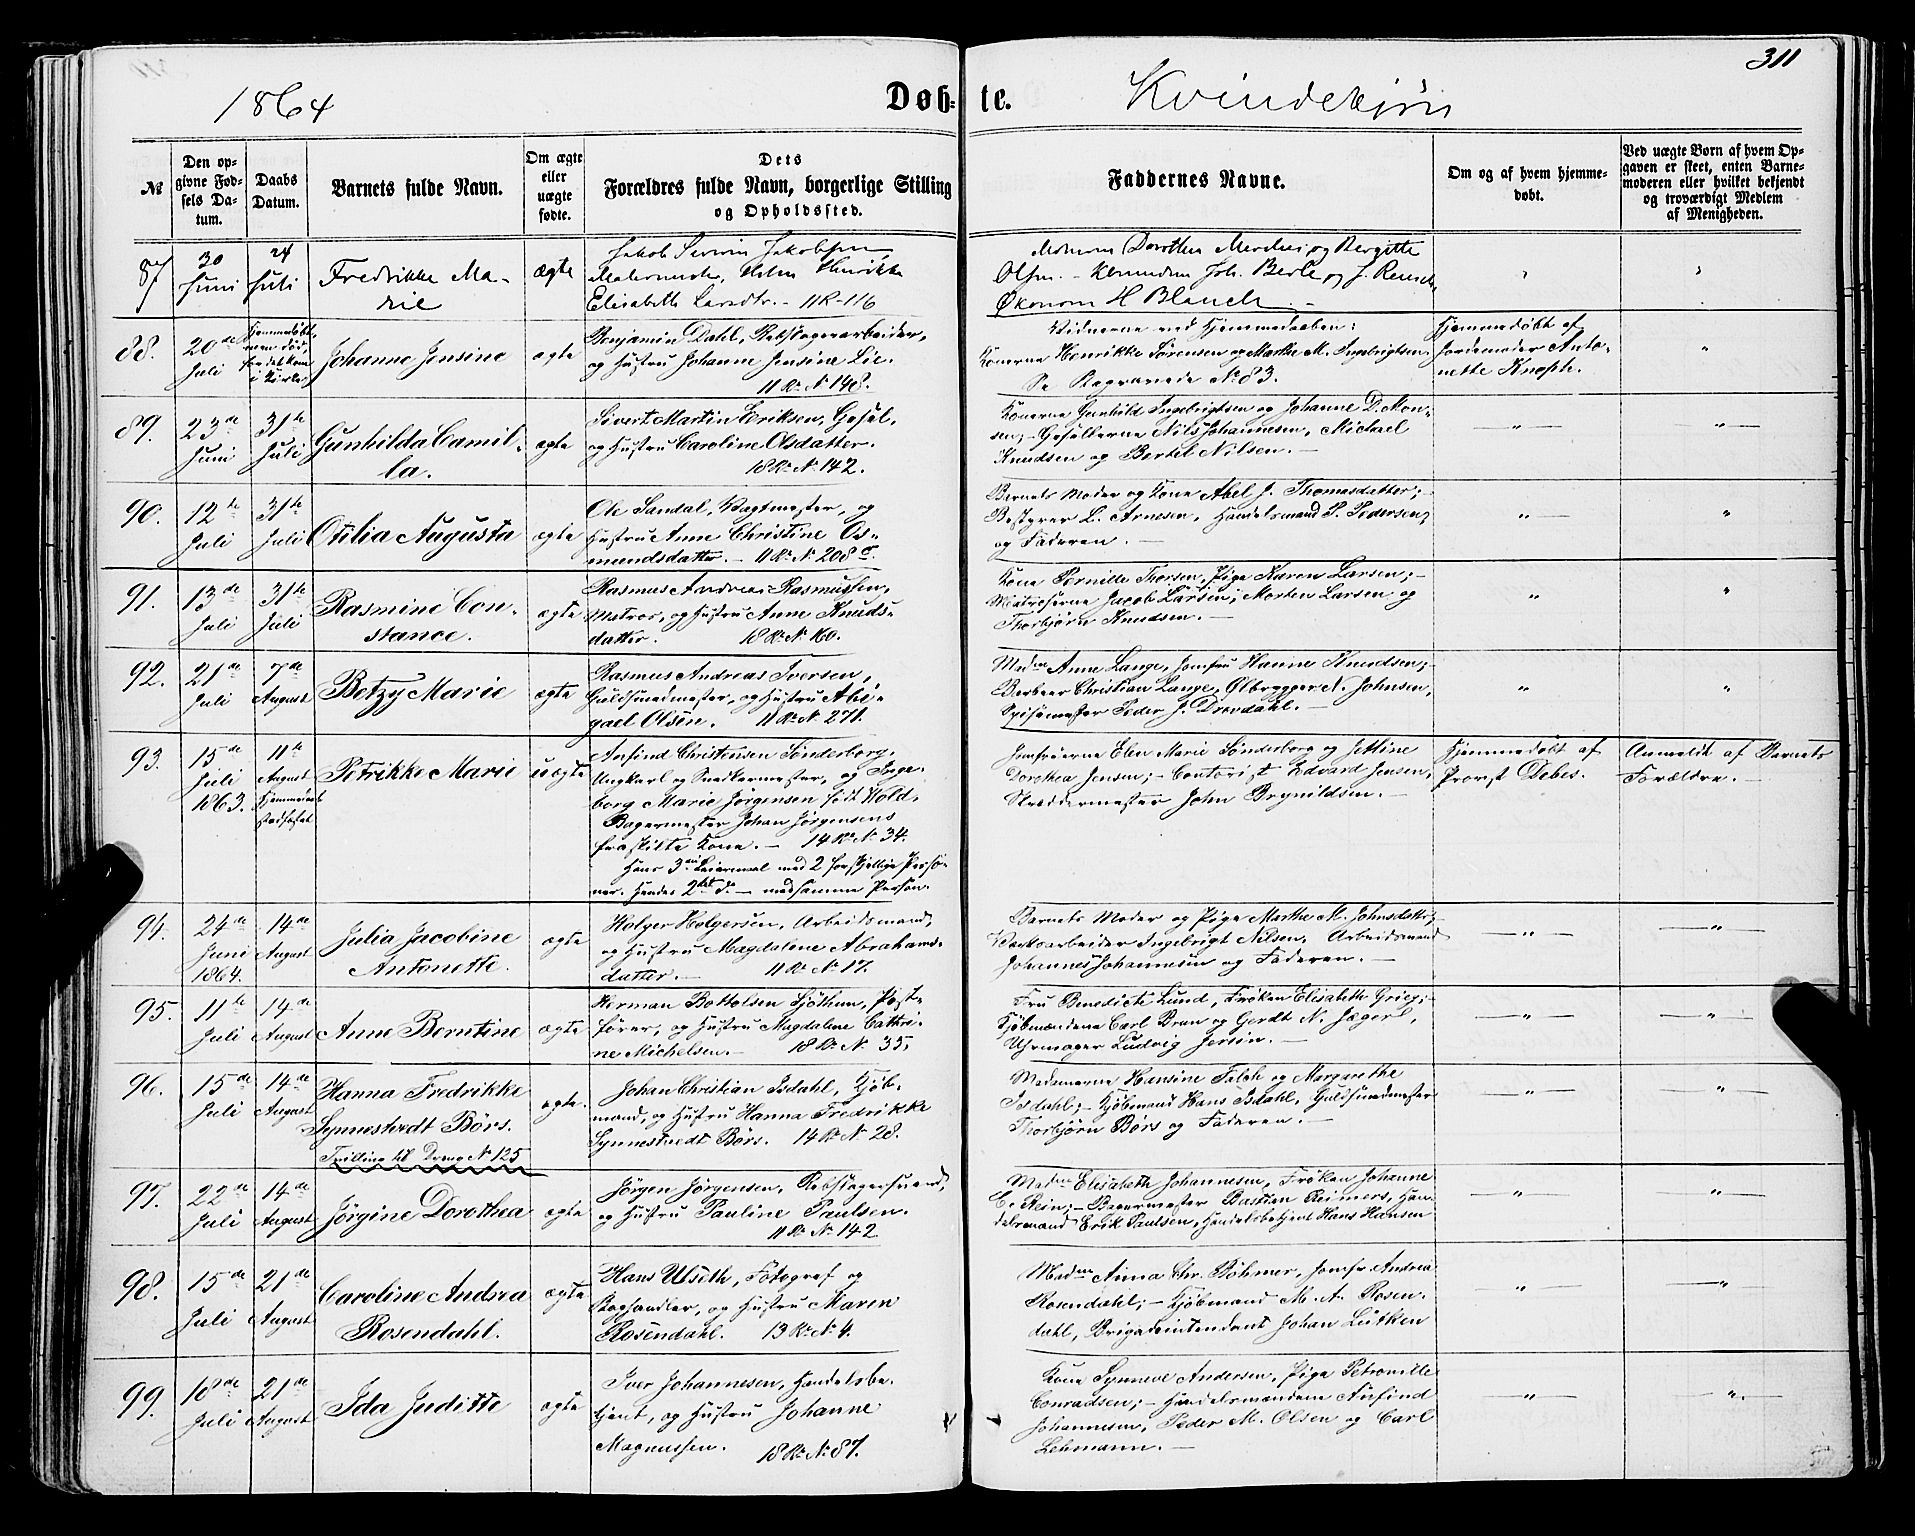 311
1864 Døbte. Kvindekjøn
№
Den opgivne Fødsels Datum.
Daabs Datum.
Barnets fulde Navn.
Om ægte eller uægte fødte.
Dets Forældres fulde Navn, borgerlige Stilling og Opholdssted.
Faddernes Navne.
Om og af hvem hjemmedøbt.
Ved uægte Børn af hvem Opgaven er skeet, enten Barnemoderen eller hvilket bekjendt og troværdigt Medlem af Menigheden.
87 30 Juni 24 Juli Fredrikke Marie ægte
Jakob Severin Jakobsen
Malermester, Helen Henrikke
Elisabeth Larsdtr. - 11R-116
Dorothea og Bergitte
Olsen. - Kjøbmændene Joh. Berle og J. Reusch,
Økonom H Blauch. -
88. 20de Juli Hjemmedøbt, men død, før det kom i Kirke Johanne Jensine ægte
Benjamin Dahl, Rebslagerarbeider,
og Hustru Johanne Jensine Lie.
11 R. N. 148.
Vidnerne ved Hjemmedaaben:
Konerne Henrikke Sørensen og Marthe M. Ingebrigtsen.
Se Begravede N. 83.
Hjemmedøbt af
Jordemoder Anto-
nette Knoph.
"
89. 23de Juni 31te Juli Gunhilda Camil-
la. ægte
Sivert Martin Eriksen, Gesel,
og Hustru Caroline Olsdatter.
18 R. N. 142.
Konerne Gunhild Ingebrigtsen og Johanne D. Mon-
sen; - Gesellerne Nils Johannesen, Michael
Knudsen og Bertel Nilsen. -
90. 12te Juli 31te Juli Otilia Augusta ægte
Ole Sandal, Vagtmester, og
Hustru Anne Christine Os-
mundsdatter. - 11 R. N. 208 c.
Barnets Moder og Kone Abel J. Thomasdatter; -
Bestyrer L. Arnesen, Handelsmand P. Pedersen,
og Faderen. -
91. 13de Juli 31te Juli Rasmine Con-
stance. ægte
Rasmus Andreas Rasmussen,
Matros, og Hustru Anne Knuds-
datter. 18 R. N. 160.
Kone Pernille Thorsen, Pige Karen Larsen; -
Matroserne Jacob Larsen, Morten Larsen og
Thorbjørn Knudsen. -
92. 21de Juli 7de August Betzy Marie ægte
Rasmus Andreas Iversen,
Guldsmedmester, og Hustru Abi-
gael Olsen. 11 R. N. 271.
Madm Anne Lange, Jomfru Hanne Knudsen; -
Barbeer Christian Lange, Ølbrygger N. Johnsen,
Spisemester Peder J. Drevdahl. -
93. 15de Juli 1863. 11te August Hjemmedaab stadfæstet Petrikke Marie uægte
Anfind Christensen Sønderborg,
Ungkarl og Snedkermester, og Inge-
borg Marie Jørgensen født Wold,
Bagermester Johan Jørgensens
fraskilte Kone. - 14 R. N. 34.
Hans 3die Leiermaal med 2 forskjellige Perso-
ner. Hendes 2det do - med samme Person.
Jomfruerne Elen Marie Sønderborg og Jettine
Dorothea Jensen; - Contorist Edvard Jensen,
Skræddermester John Brynildsen. -
Hjemmedøbt af
Provst Debes.
Anmeldt af Barnets
Forældre. -
94. 24de Juni 1864. 14de August Julia Jacobine
Antonette. ægte
Holger Holgersen, Arbeidsmand,
og Hustru Magdalene Abrahams-
datter. - 11 R. N. 17.
Barnets Moder og Pige Marthe M. Johnsdatter; -
Værksarbeider Ingebrigt Nilsen, Arbeidsmand
Johannes Johannesen og Faderen. -
95. 11te Juli 14de August Anne Berntine ægte
Herman Bottolsen Sjøthun, Post-
fører, og Hustru Magdalene Cathri-
ne Michelsen. - 18 R. N. 35.
Fru Benedicte Lund, Frøken Elisabeth Grieg; -
Kjøbmændene Carl Brun og Gerdt N. Jæger,
Uhrmager Ludvig Jersin. -
96. 15de Juli 14de August Hanna Fredrikke
Synnestvedt Børs.
Tvilling til Dreng N. 125 ægte.
Johan Christian Isdahl, Kjøb-
mand, og Hustru Hanna Fredrikke
Synnestvedt Børs. 14 R. N. 28.
Madamerne Hansine Falch og Margarethe
Isdahl; - Kjøbmand Hans Isdahl, Guldsmedmester
Thorbjørn Børs og Faderen. -
97. 22de Juli 14de August Jørgine Dorothea ægte
Jørgen Jørgensen, Rebslagersvend,
og Hustru Pauline Paulsen.
11 R. N. 142
Madm Elisabeth Johannesen, Frøken Johanne
C. Rein; - Bagermester Bastian Reimers, Han-
delsmand Erik Paulsen, Handelsbetjent Hans Hansen
98. 15de Juli 21de August Caroline Andrea
Rosendahl. ægte
Hans Ulseth, Fotograf og
Boghandler, og Hustru Maren
Rosendahl. 13 R. N. 4.
Madm Anna Chr. Bøhmer, Jomfr. Andrea
Rosendahl; - Kjøbmand M. A. Rosen-
dahl, Brigadeintendant Johan Lütken
99. 18de Juli 21de August Ida Juditte ægte
Iver Johannesen, Handelsbe-
tjent, og Hustru Johanne
Magnussen. 18 R. N. 87.
Kone Synneve Andersen, Pige Petronille
Conradsen; - Handelsmændene Anfind
Johannesen, Peder M. Olsen og Carl
Lehmann. -